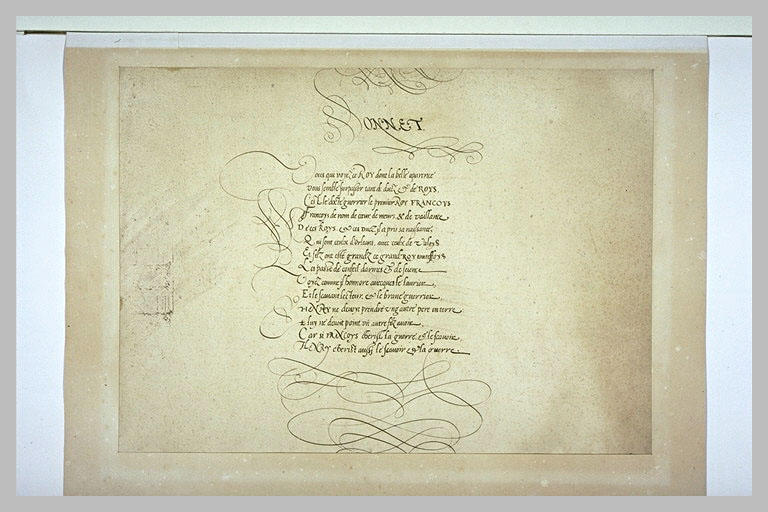 SONNET.
Vous qui voyez ce ROY dont la belle aparence
Vous semble surpasser tant de ducz & de ROYS
C'est le docte guerrier le premier ROY FRANCOYS
Francoys de nom de cœur de meurs & de vaillance
De ces ROYS & ces Ducz il a pris sa naissance,
Qui sont ceulx d'Orleans, avec ceulx de Valoys
Et s'ilz ont esté grandz ce grand ROY touteffoys
Les passe de conseil d'armes & de science
Voyez comme s'honnore avecques le laurier
Et le scavant lecteur, & le brave guerrier
HENRY ne devoit prendre ung autre pere en terre
Et luy ne devoit point un autre filz avoir,
Car si FRANCOYS cherist la guerre & le scavoir,
HENRY cherist aussi le scavoir & la guerre